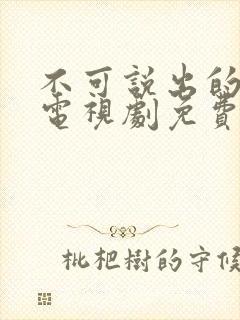 不可説出的
電視劇免費
枇杷樹的守候